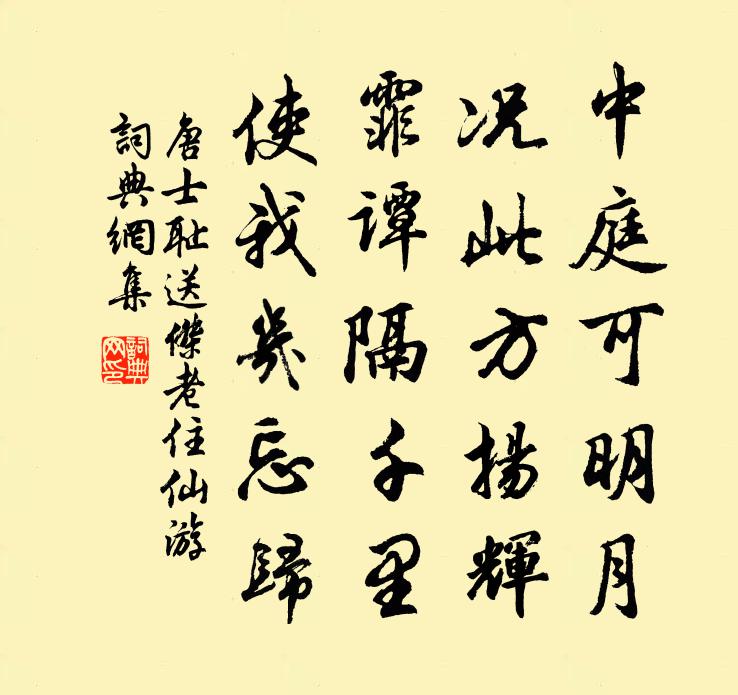 中庭可明月
况此方揚輝
霏譚隔千里
使我幾忘歸
唐士耻送傑老住仙游
詞典網集
詞典網印